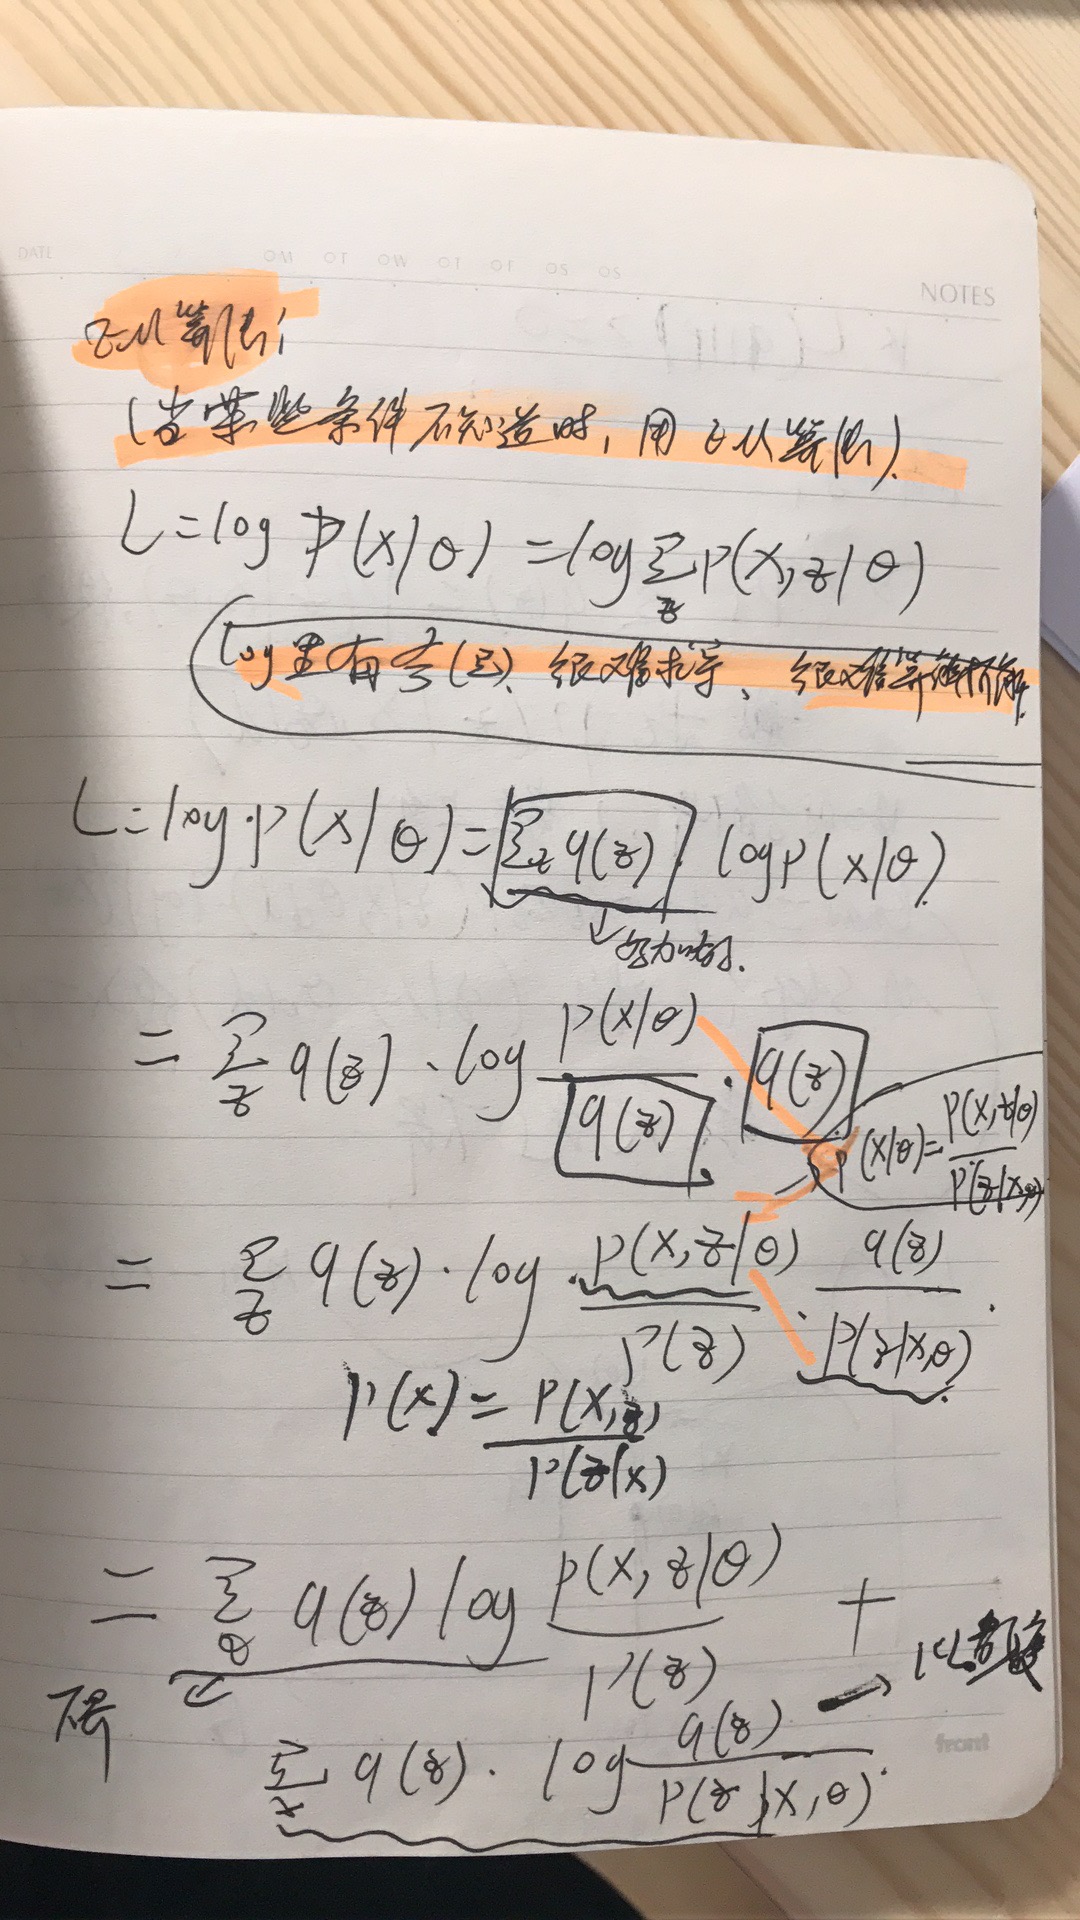 DATE
OM OT OW OT OF OS OS
NOTES
EM算法:
(当某些条件不知道时,用EM算法).
L=log P(x|θ) =log Σ_z P(x,z|θ)
log里有 (Σ)、很难求导、很难
L=log·P(x|θ)=Σ_z q(z) · logP(x|θ).
= Σ_z q(z) · log P(x|θ)/q(z) · q(z)
P(x|θ)= P(x,z|θ)/P(z|x,θ)
= Σ_z q(z) · log · P(x,z|θ)/P(z) · q(z)/P(z|x,θ) .
P(x)= P(x,z)/P(z|x)
= Σ_θ q(z) log P(x,z|θ)/P(z) +
下界
→ KL散度
Σ_x q(z) · log q(z)/P(z|x,θ) .
front